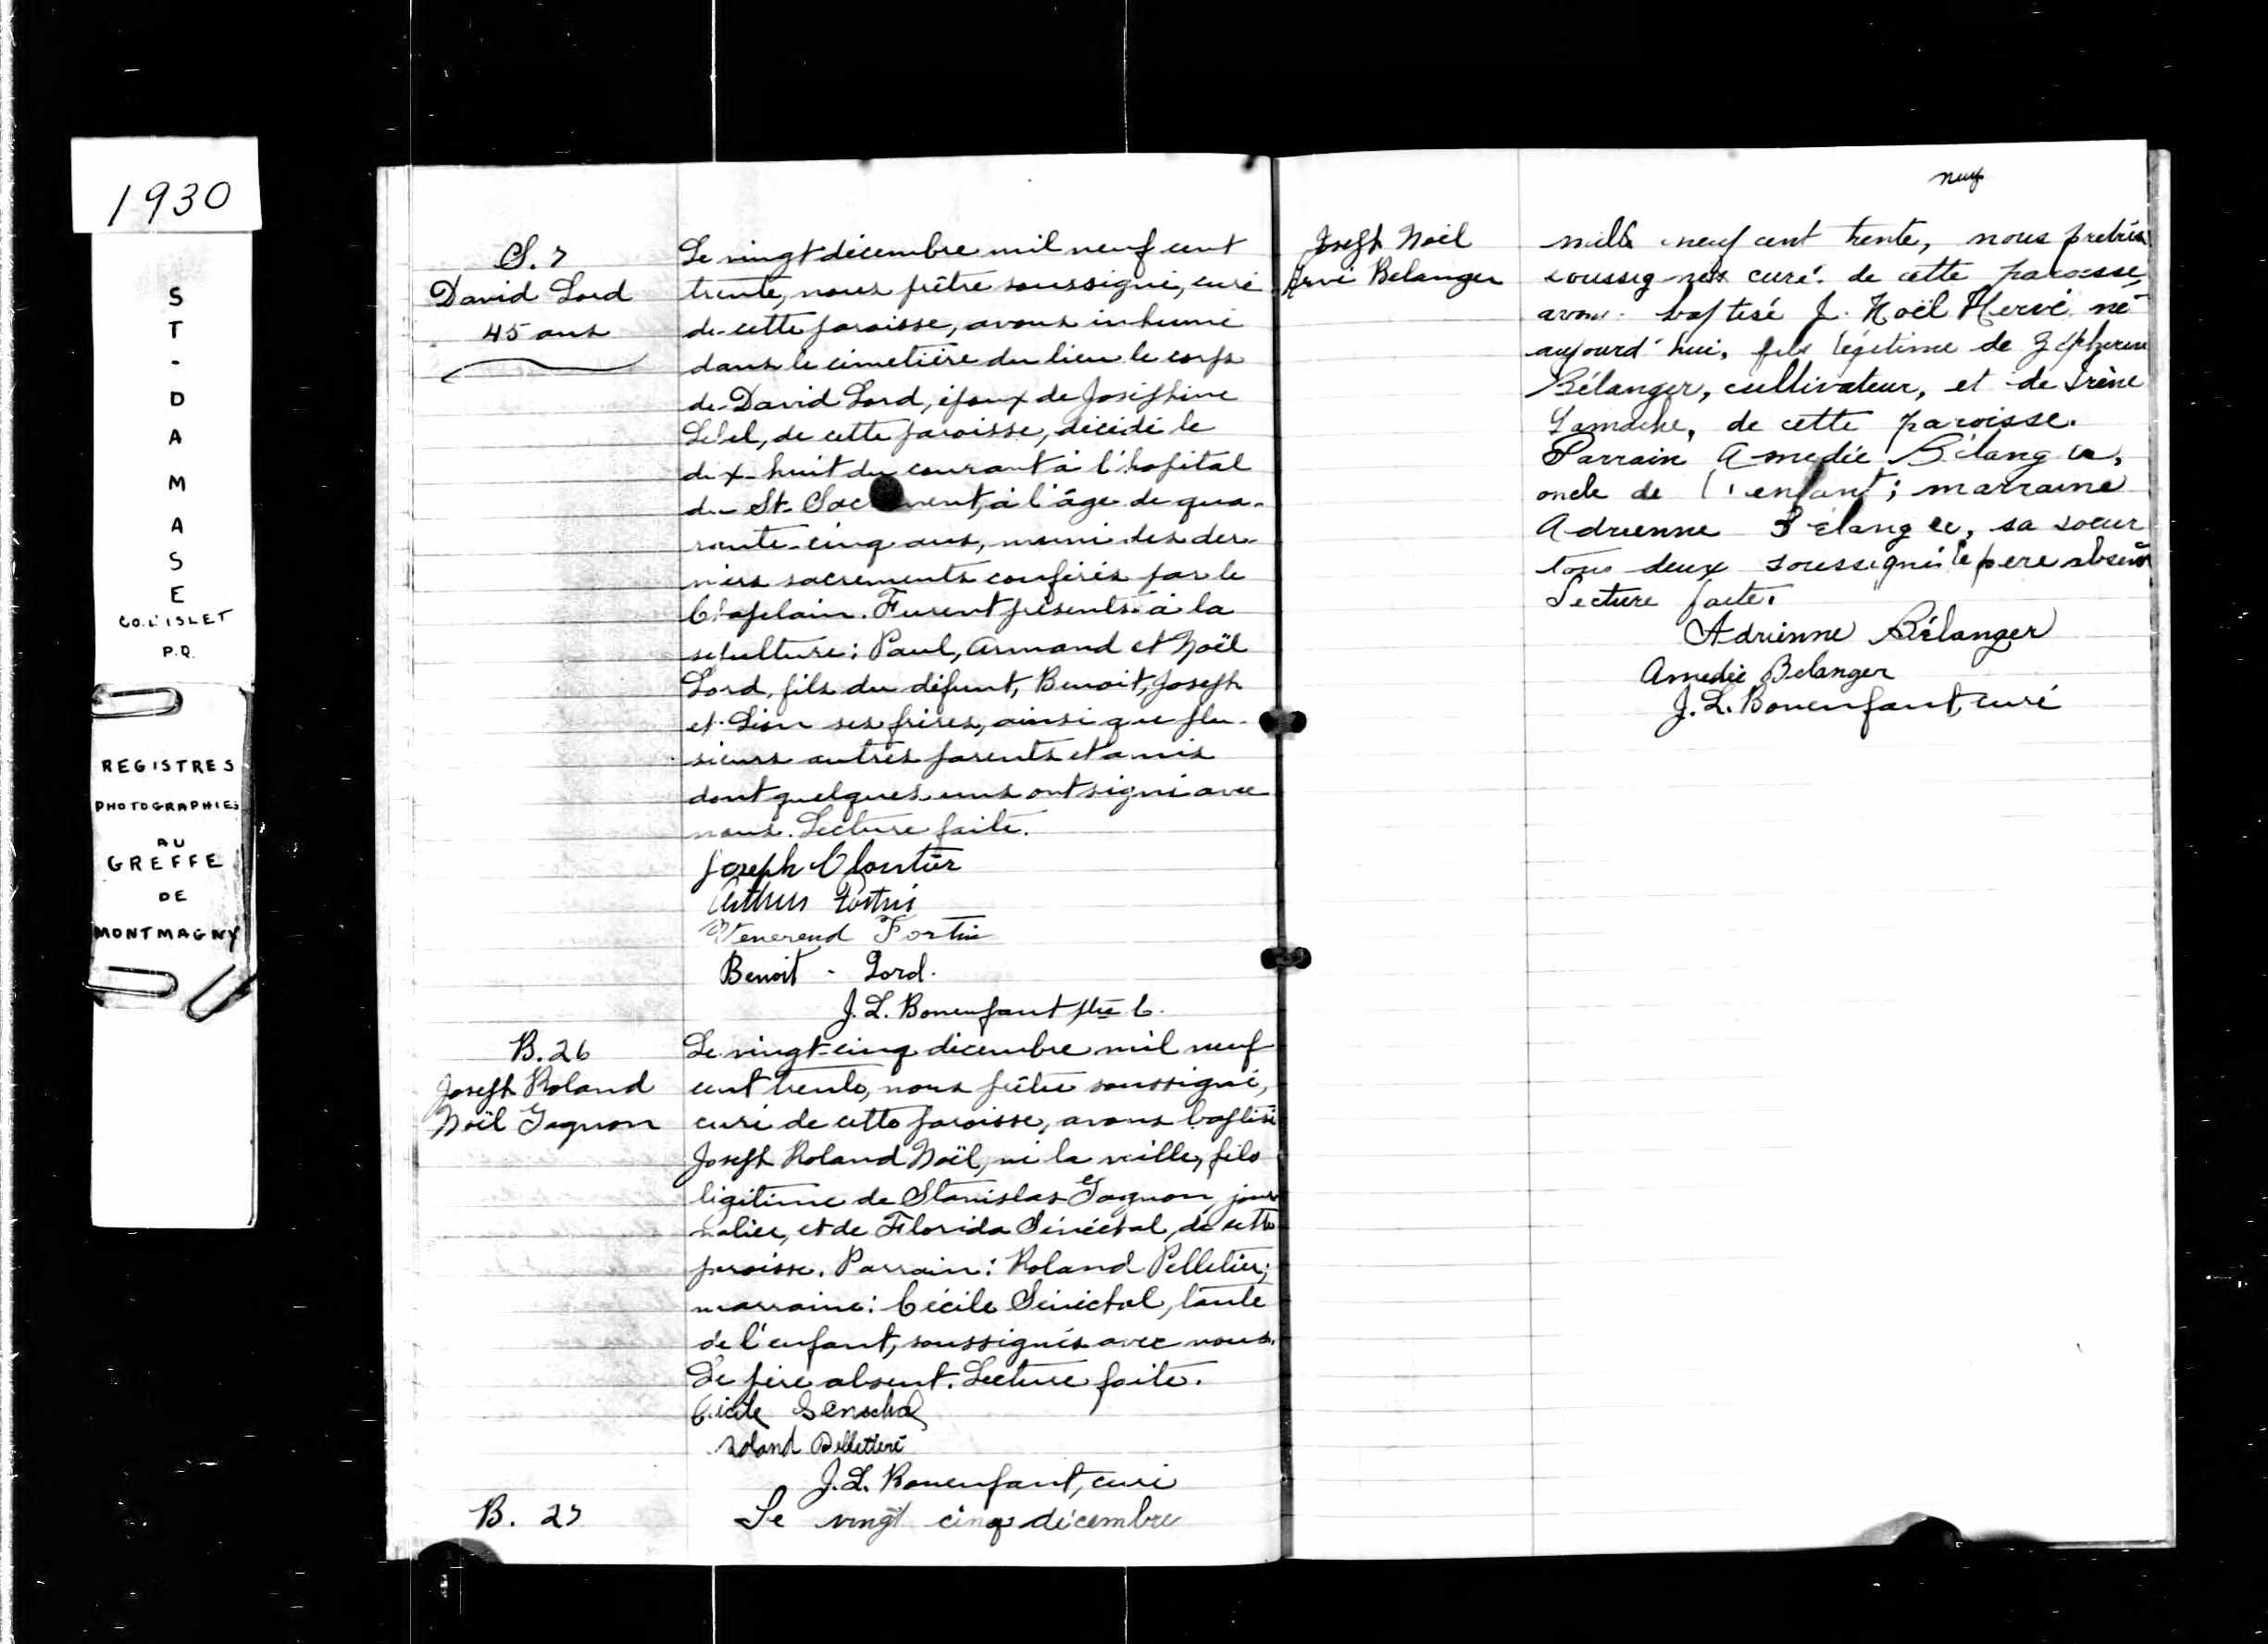 1930
S
T
-
D
A
M
A
S
E
CO. L'ISLET
P.Q.
REGISTRES
PHOTOGRAPHIES
AU
GREFFE
DE
MONTMAGNY
S. 7
David Lord
45 ans
Le vingt décembre mil neuf cent
trente, nous prêtre soussigné, curé
de cette paroisse, avons inhumé
dans le cimetière du lieu le corps
de David Lord, époux de Joséphine
Lebel, de cette paroisse, décédé le
dix-huit du courant à l'hopital
du St-Sac ment, à l'âge de qua-
rante-cinq ans, muni des der-
niers sacrements conférés par le
Chapelain. Furent présents à la
sepulture: Paul, Armand et Noël
Lord, fils du défunt, Benoit, Joseph
et Léon ses frères, ainsi que plu-
sieurs autres parents et amis
dont quelques uns ont signé avec
nous. Lecture faite.
Joseph Cloutier
Fortin
Venerend Fortin
Benoit - Lord.
J. L. Bonenfant ptre C.
B. 26
Joseph Roland
Noël Gagnon
Le vingt-cinq décembre mil neuf
cent trente, nous prêtre soussigné,
curé de cette paroisse, avons baptisé
Joseph Roland Noël, né la veille, fils
légitime de Stanislas Gagnon, jour
nalier, et de Florida Sénéchal, de cette
paroisse. Parrain: Roland Pelletier;
marraine: Cécile Sénéchal, tante
de l'enfant, soussignés avec nous.
Le père absent. Lecture faite.
Cécile Senechal
Roland Pelletier
J. L. Bonenfant, curé
B. 27
Le vingt cinq décembre
neuf
Joseph Noël
Arvé Belanger
mille neuf cent trente, nous pretre
soussignes curé de cette paroisse,
avons baptisé J. Noël Hervé né
aujourd'hui, fils légitime de Zépherin
Bélanger, cultivateur, et de Irène
de cette paroisse.
Parrain Amedée Bélanger,
oncle de l'enfant; marraine
Adrienne Bélanger, sa soeur
tous deux soussigné le pere absent
Lecture faite.
Adrienne Bélanger
Amedée Belanger
J. L. Bonenfant, curé